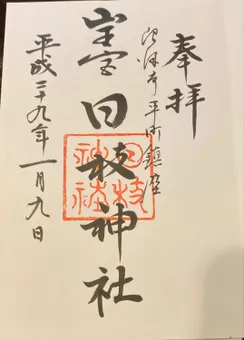 奉拝
沼津市平町鎮座
山王宮 日枝神社
日枝
神社
平成二十九年一月九日